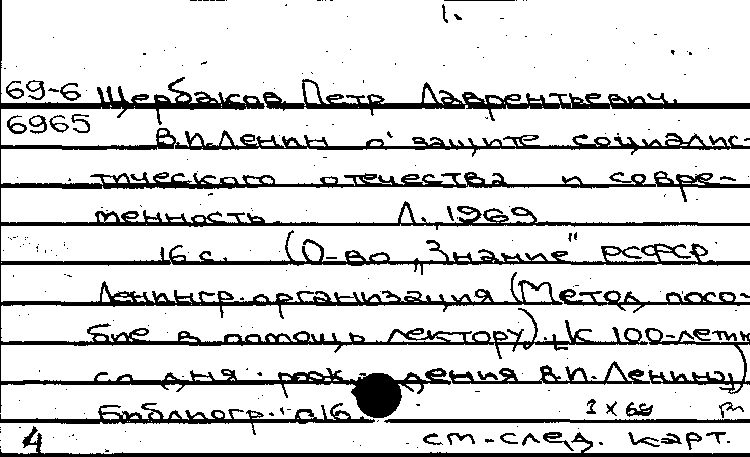 1.
69-6 Щербаков, Петр Лаврентьевич.
6965
В.И.Ленин о защите социалис-
тического отечества и совре-
менность. Л., 1969
16 с. (О-во „Знание" РСФСР.
Ленингр. организация (Метод. посо-
бие в помощь лектору). К 100-летию
со дня рождения В.И. Ленина)
Библиогр.: с.16.
1 х 69
4 см. след. карт.